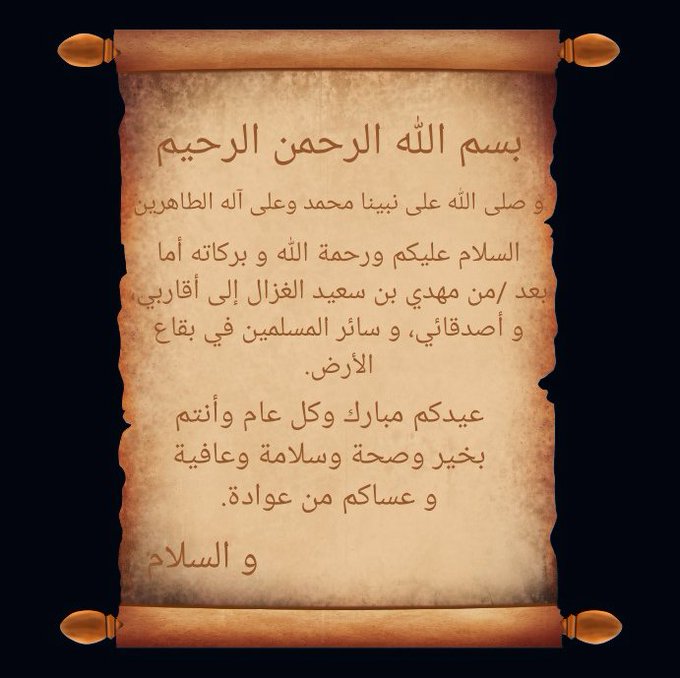 بسم الله الرحمن الرحيم
و صلى الله على نبينا محمد وعلى آله الطاهرين
السلام عليكم ورحمة الله و بركاته أما
بعد /من مهدي بن سعيد الغزال إلى أقاربي،
و أصدقائي، و سائر المسلمين في بقاع
الأرض.
عيدكم مبارك وكل عام وأنتم
بخير وصحة وسلامة وعافية
و عساكم من عوادة.
و السلام